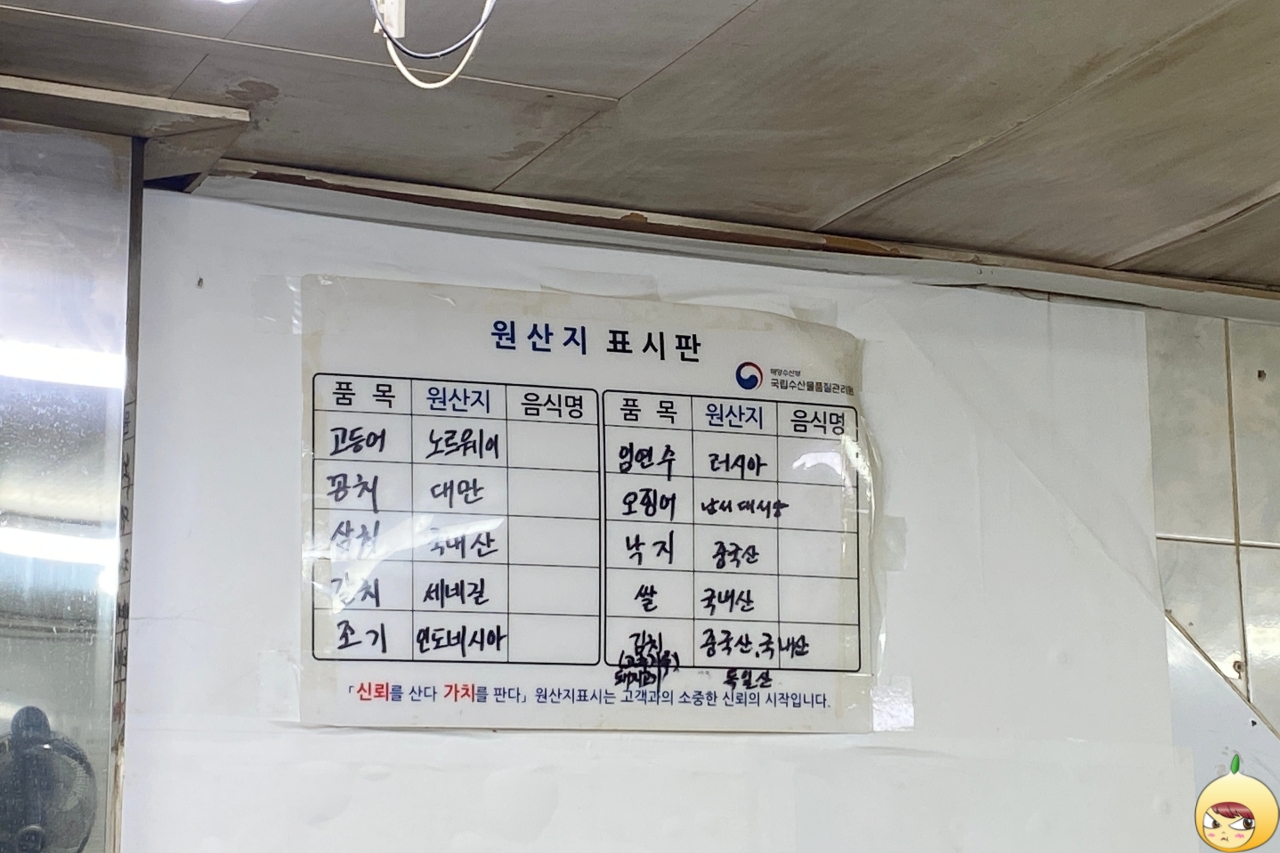 원산지 표시판
해양수산부
국립수산물품질관리원
품 목 원산지 음식명
고등어 노르웨이
꽁치 대만
삼치 국내산
갈치 세네갈
조기 인도네시아
품 목 원산지 음식명
임연수 러시아
오징어 남서대서양
낙지 중국산
쌀 국내산
김치 중국산, 국내산
(고춧가루)
돼지고기 독일산
「신뢰를 산다 가치를 판다」 원산지표시는 고객과의 소중한 신뢰의 시작입니다.